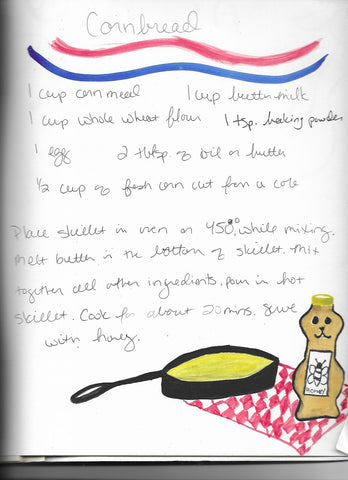 Cornbread
1 cup corn meal 1 cup buttermilk
1 cup whole wheat flour 1 tsp. baking powder
1 egg 2 tblsp. of oil or butter
1/2 cup of fresh corn cut from a cob
Place skillet in oven on 450° while mixing.
Melt butter in the bottom of skillet. Mix
together all other ingredients. pour in hot
skillet. Cook for about 20 mins. Serve
with honey.
HONEY